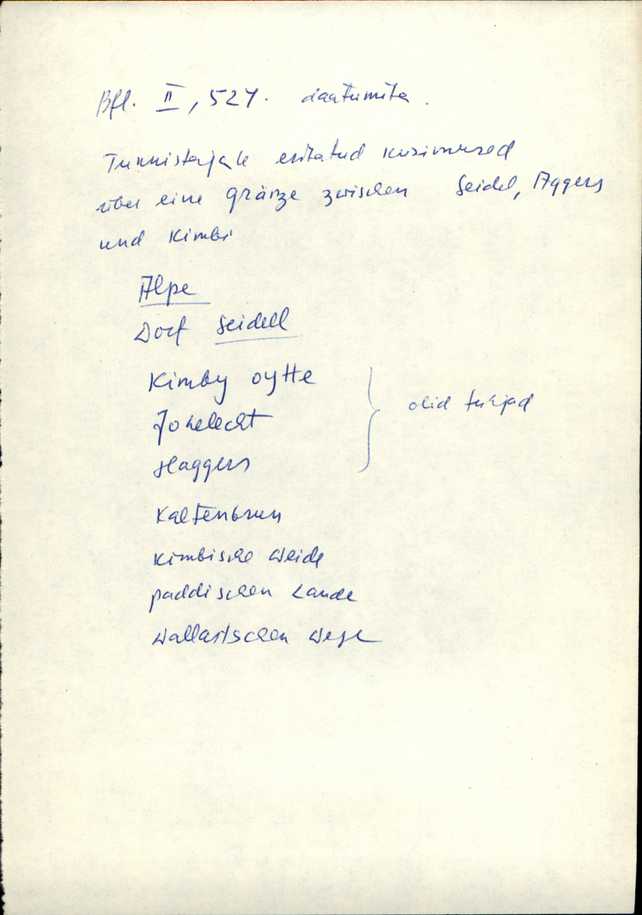 Bfl. II, 527. daatumita.
Tunnistajale esitatud küsimused
über eine gränze zwischen Seidel, Aggers
und Kimbi
Alpe
Dorf Seidell
Kimby oytte
Jokelecht
Haggers
olid tühjad
Kaltenbrun
Kimbische Weide
paddischen Lande
Wallartschen Wege